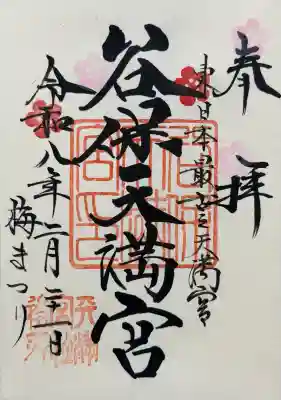 奉拝
東日本最古之天満宮
谷保天満宮
令和八年二月二十二日
梅まつり